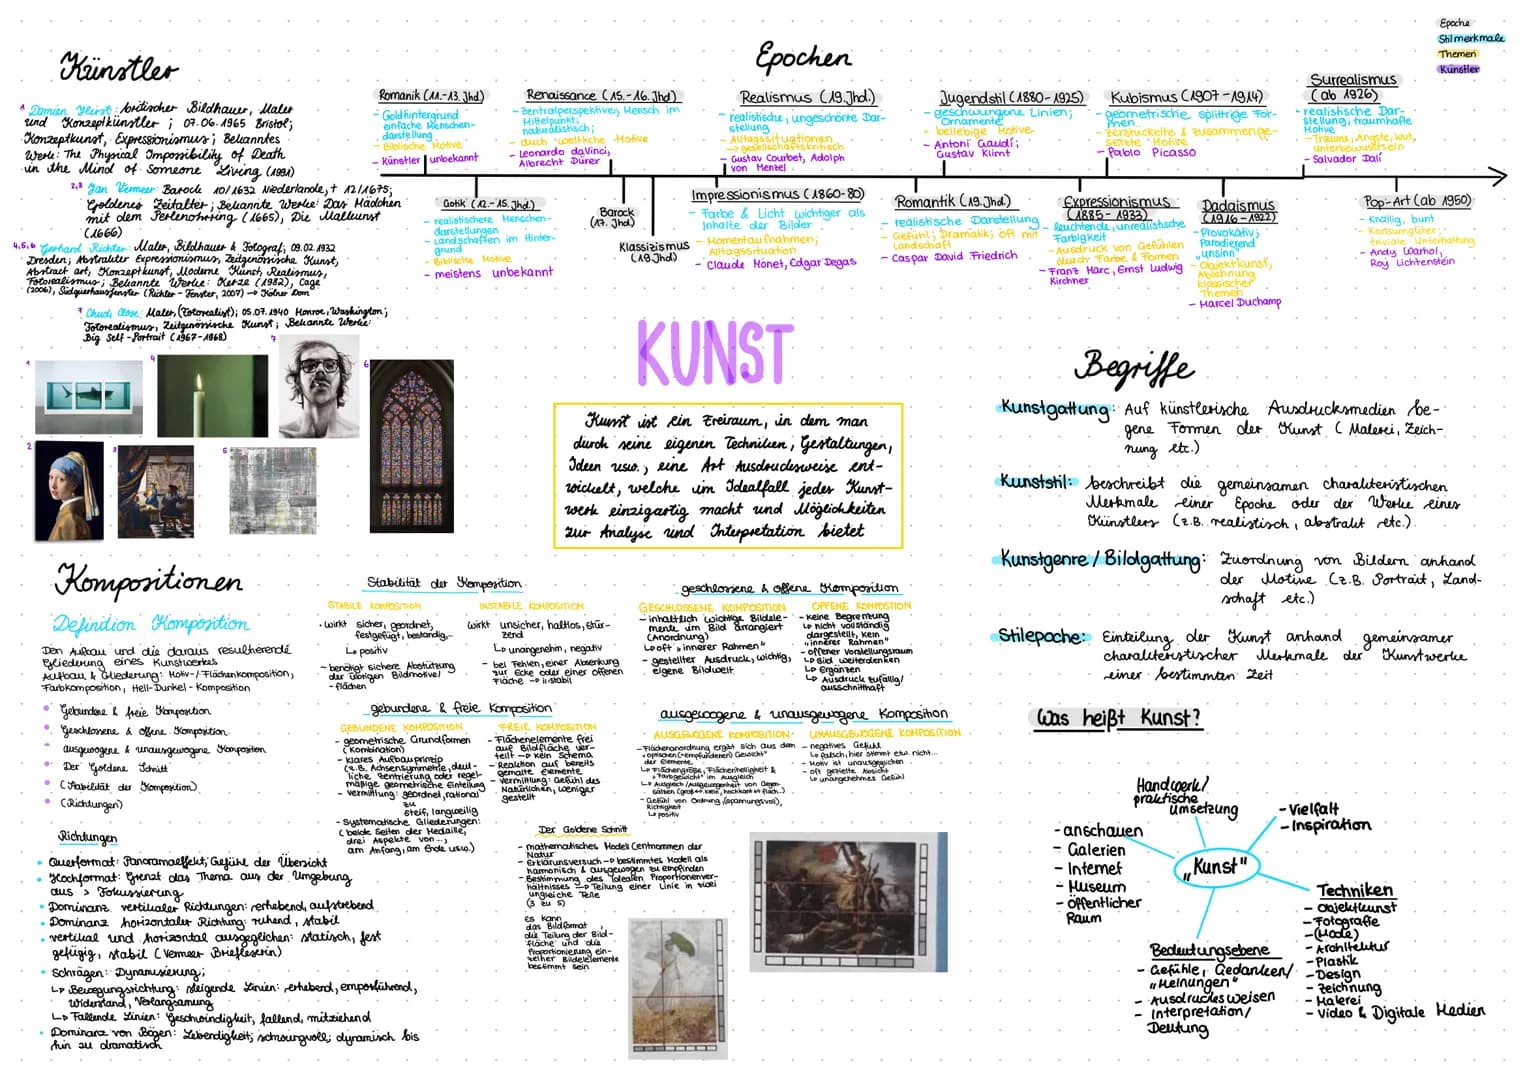 Künstler
¹ Damien Hirst: britischer Bildhauer, Maler
und Konzeptkünstler; 07.06.1965 Bristol;
Konzeptkunst, Expressionismus; Bekanntes
Werk: The Physical Impossibility of Death
in the Mind of Someone Living (1991)
2,3 Jan Vermeer: Barock 10/1632 Niederlande, † 12/1675;
Goldenes Zeitalter; Bekannte Werke: Das Mädchen
mit dem Perlenohrring (1665), Die Malkunst
(1666)
4,5,6 Gerhard Richter: Maler, Bildhauer & Fotograf; 09.02.1932
Dresden; Abstrakter Expressionismus, Zeitgenössische Kunst,
Abstract art, Konzeptkunst, Moderne Kunst, Realismus,
Fotorealismus; Bekannte Werke: Kerze (1982), Cage
(2006), Südquerhausfenster (Richter-Fenster, 2007) → Kölner Dom
7 Chuck Close: Maler, (Fotorealist); 05.07.1940 Monroe, Washington;
Fotorealismus, Zeitgenössische Kunst; Bekannte Werke:
Big Self-Portrait (1967-1968)
1
4
7
6
2
3
5
Epochen
Epoche
Stilmerkmale
Themen
Künstler
Romanik (11.-13. Jhd)
- Goldhintergrund
einfache Menschen-
darstellung
- Biblische Motive
- Künstler unbekannt
Renaissance (15.-16. Jhd)
- Zentralperspektive; Mensch im
Mittelpunkt;
naturalistisch;
- auch weltliche Motive
- Leonardo daVinci,
Albrecht Dürer
Realismus (19. Jhd.)
- realistische, ungeschönte Dar-
stellung
- Alltagssituationen
→ gesellschaftskritisch
- Gustav Courbet, Adolph
von Menzel
Jugendstil (1880-1925)
- geschwungene Linien;
Ornamente
- beliebige Motive
- Antoni Gaudí;
Gustav Klimt
Kubismus (1907-1914)
- geometrische, splittrige For-
men
- zerstückelte & zusammenge-
setzte Motive
- Pablo Picasso
Surrealismus
(ab 1926)
- realistische Dar-
stellung, traumhafte
Motive
- Träume, Ängste, Wut,
Unterbewusstsein
- Salvador Dalí
Gotik (12.-15. Jhd.)
- realistischere Menschen-
darstellungen
- Landschaften im Hinter-
grund
- Biblische Motive
- meistens unbekannt
Barock
(17. Jhd)
Klassizismus
(18. Jhd)
Impressionismus (1860-80)
- Farbe & Licht wichtiger als
Inhalte der Bilder
- Momentaufnahmen;
Alltagssituation
- Claude Monet, Edgar Degas
Romantik (19. Jhd.)
- realistische Darstellung
- Gefühl; Dramatik; oft mit
Landschaft
- Caspar David Friedrich
Expressionismus
(1885-1933)
- leuchtende, unrealistische
Farbigkeit
- Ausdruck von Gefühlen
durch Farbe & Formen
- Franz Marc, Ernst Ludwig
Kirchner
Dadaismus
(1916-1922)
- Provokativ;
Parodierend
„unsinn"
- Objektkunst,
Ablehnung
klassischer
Themen
- Marcel Duchamp
Pop-Art (ab 1950)
- Knallig, bunt
- Konsumgüter;
triviale Unterhaltung
- Andy Warhol,
Roy Lichtenstein
KUNST
Kunst ist ein Freiraum, in dem man
durch seine eigenen Techniken, Gestaltungen,
Ideen usw., eine Art Ausdrucksweise ent-
wickelt, welche im Idealfall jedes Kunst-
werk einzigartig macht und Möglichkeiten
zur Analyse und Interpretation bietet
Begriffe
Kunstgattung: Auf künstlerische Ausdrucksmedien be-
gene Formen der Kunst (Malerei, Zeich-
nung etc.)
Kunststil: beschreibt die gemeinsamen charakteristischen
Merkmale einer Epoche oder der Werke eines
Künstlers (z.B. realistisch, abstrakt etc.)
Kunstgenre/Bildgattung: Zuordnung von Bildern anhand
der Motive (z.B. Portrait, Land-
schaft etc.)
Stilepoche: Einteilung der Kunst anhand gemeinsamer
charakteristischer Merkmale der Kunstwerke
einer bestimmten Zeit
Kompositionen
Definition Komposition
Den Aufbau und die daraus resultierende
Gliederung eines Kunstwerkes
Aufbau & Gliederung: Motiv-/Flächenkomposition,
Farbkomposition, Hell-Dunkel-Komposition
• Gebundene & freie Komposition
• Geschlossene & offene Komposition
• ausgewogene & unausgewogene Komposition
• Der Goldene Schnitt
• (Stabilität der Komposition)
• (Richtungen)
Richtungen
• Querformat: Panoramaeffekt; Gefühl der Übersicht
• Hochformat: Grenzt das Thema aus der Umgebung
aus > Fokussierung
• Dominanz vertikaler Richtungen: erhebend, aufstrebend
• Dominanz horizontaler Richtung: ruhend, stabil
• vertikal und horizontal ausgeglichen: statisch, fest
gefügig, stabil (Vermeer Briefleserin)
• Schrägen: Dynamisierung;
↳ Bewegungsrichtung: steigende Linien: erhebend, emporführend,
Widerstand, Verlangsamung
↳ Fallende Linien: Geschwindigkeit, fallend, mitziehend
• Dominanz von Bögen: Lebendigkeit; schwungvoll; dynamisch bis
hin zu dramatisch
Stabilität der Komposition
STABILE KOMPOSITION
• wirkt sicher, geordnet,
festgefügt, beständig,..
↳ positiv
- benötigt sichere Abstützung
der übrigen Bildmotive/
-flächen
INSTABILE KOMPOSITION
wirkt unsicher, haltlos, stür-
zend
↳ unangenehm, negativ
- bei Fehlen, einer Absenkung
zur Ecke oder einer offenen
Fläche → instabil
gebundene & freie Komposition
GEBUNDENE KOMPOSITION
- geometrische Grundformen
(Kombination)
- klares Aufbauprinzip
(z.B. Achsensymmetrie, deut-
liche Zentrierung oder regel-
mäßige geometrische Einteilung
- Vermittlung: geordnet, rational
zu
steif, langweilig
- Systematische Gliederungen:
(beide Seiten der Medaille,
drei Aspekte von...,
am Anfang, am Ende usw.)
FREIE KOMPOSITION
- Flächenelemente frei
auf Bildfläche ver-
teilt → kein Schema
- Reaktion auf bereits
gemalte Elemente
- Vermittlung: Gefühl des
Natürlichen, weniger
gestellt
geschlossene & offene Komposition
GESCHLOSSENE KOMPOSITION
- inhaltlich wichtige Bildele-
mente im Bild arrangiert
(Anordnung)
↳ oft „innerer Rahmen"
- gestellter Ausdruck, wichtig,
eigene Bildwelt
OFFENE KOMPOSITION
- Keine Begrenzung
↳ nicht vollständig
dargestellt, kein
„innerer Rahmen"
- offener Vorstellungsraum
↳ Bild weiterdenken
↳ Ergänzen
↳ Ausdruck zufällig/
ausschnitthaft
ausgewogene & unausgewogene Komposition
AUSGEWOGENE KOMPOSITION
- Flächenanordnung ergibt sich aus dem
optischen (=empfundenen) Gewicht"
der Elemente.
↳ Flächengröße, Flächenhelligkeit &
„Farbgewicht" im Ausgleich
↳ Ausgleich/Ausgewogenheit von Gegen-
sätzen (groß ↔ klein, hochkant ↔ flach...)
- Gefühl von Ordnung, (spannungsvoll),
Richtigkeit
↳ positiv
UNAUSGEWOGENE KOMPOSITION
- negatives Gefühl
↳ falsch, hier stimmt etw. nicht...
- Motiv ist unausgeglichen
- oft gezielte Absicht
↳ unangenehmes Gefühl
Der Goldene Schnitt
- mathematisches Modell entnommen der
Natur
- Erklärungsversuch → bestimmtes Modell als
harmonisch & ausgewogen zu empfinden
- Bestimmung des idealen Proportionenver-
hältnisses → Teilung einer Linie in zwei
ungleiche Teile
(3 zu 5)
Es kann
das Bildformat,
die Teilung der Bild-
fläche und die
Proportionierung ein-
zelner Bildelemente
bestimmt sein
Was heißt Kunst?
„Kunst"
Handwerk/
praktische
Umsetzung
- Vielfalt
- Inspiration
- anschauen
- Galerien
- Internet
- Museum
- öffentlicher
Raum
Techniken
- Objektkunst
- Fotografie
- (Mode)
- Architektur
- Plastik
- Design
- Zeichnung
- Malerei
- Video & Digitale Medien
Bedeutungsebene
- Gefühle, Gedanken/
„Meinungen"
- Ausdrucksweisen
- Interpretation/
Deutung